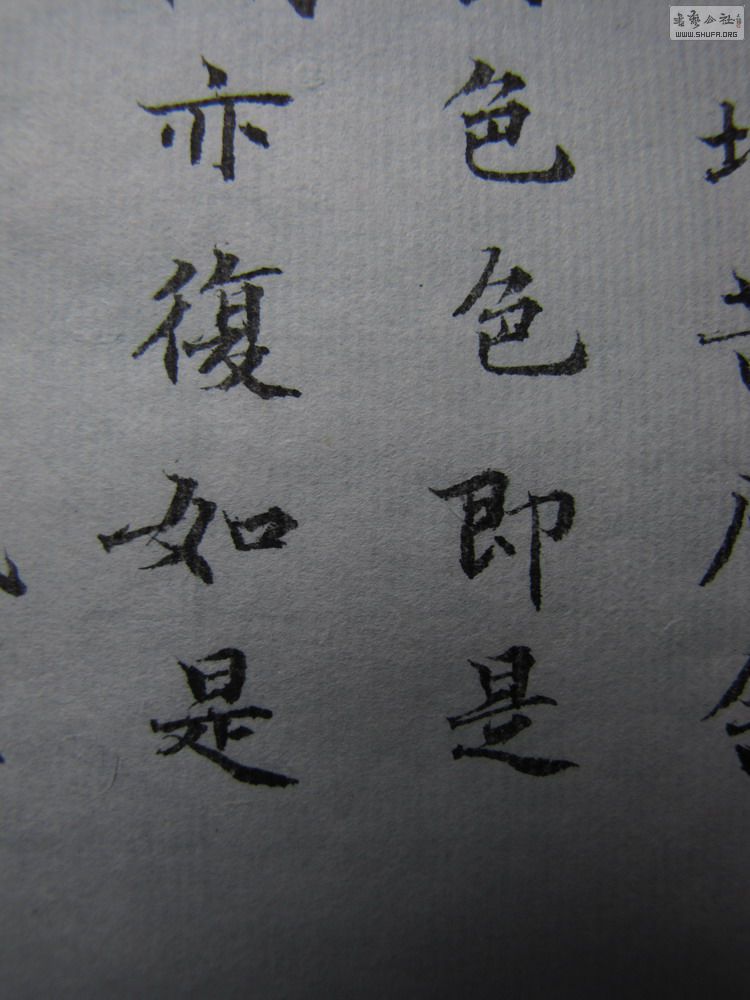 色色即是
亦復如是
書藝公社
WWW.SHUFA.ORG